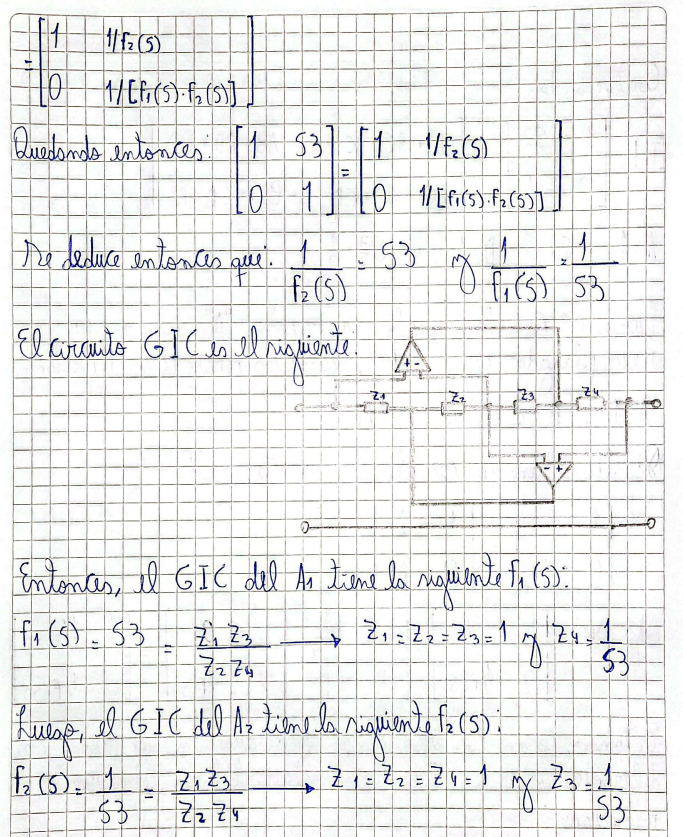 = [ 1 1/f₂(S)
0 1/[f₁(S)·f₂(S)] ]
Quedando entonces: [ 1 S3 = [ 1 1/f₂(S)
0 1 ] 0 1/[f₁(S)·f₂(S)] ]
Se deduce entonces que: 1/f₂(S) = S3 y 1/f₁(S) = 1/S3
El circuito GIC es el siguiente:
+ -
Z1 Z2 Z3 Z4
- +
Entonces, el GIC del A1 tiene la siguiente f₁(S):
f₁(S) = S3 = Z1 Z3 / Z2 Z4 → Z1 = Z2 = Z3 = 1 y Z4 = 1/S3
Luego, el GIC del A2 tiene la siguiente f₂(S):
f₂(S) = 1/S3 = Z1 Z3 / Z2 Z4 → Z1 = Z2 = Z4 = 1 y Z3 = 1/S3